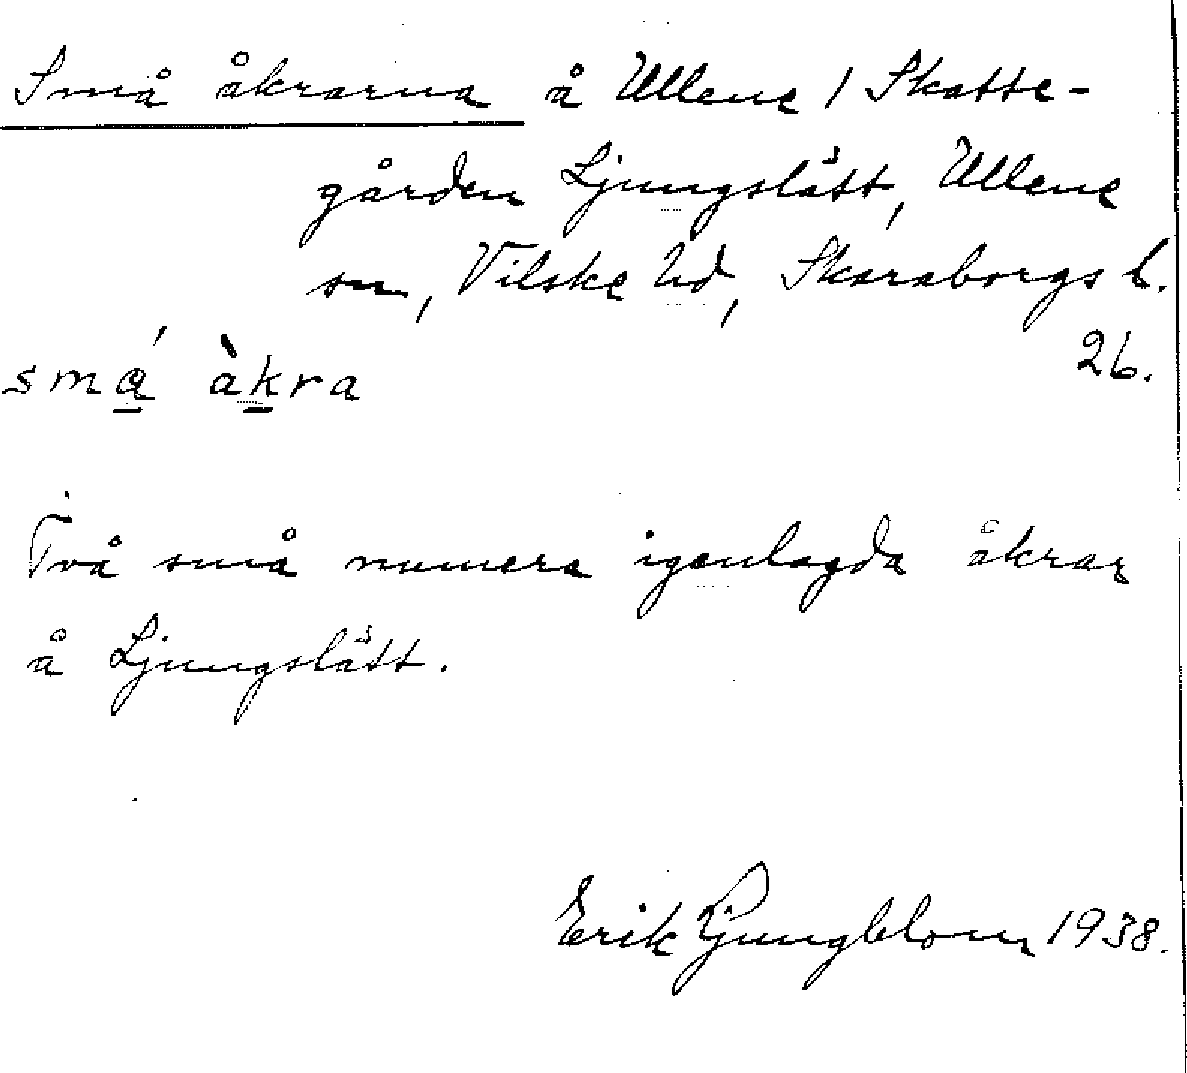 Små åkrarna å Ullene 1 Skatte-
gården Ljungslätt, Ullene
sn, Vilske hd, Skaraborgs l.
26.
små̀ àkra
Två små numera igenlagda åkrar
å Ljungslätt.
Erik Ljungblom 1938.